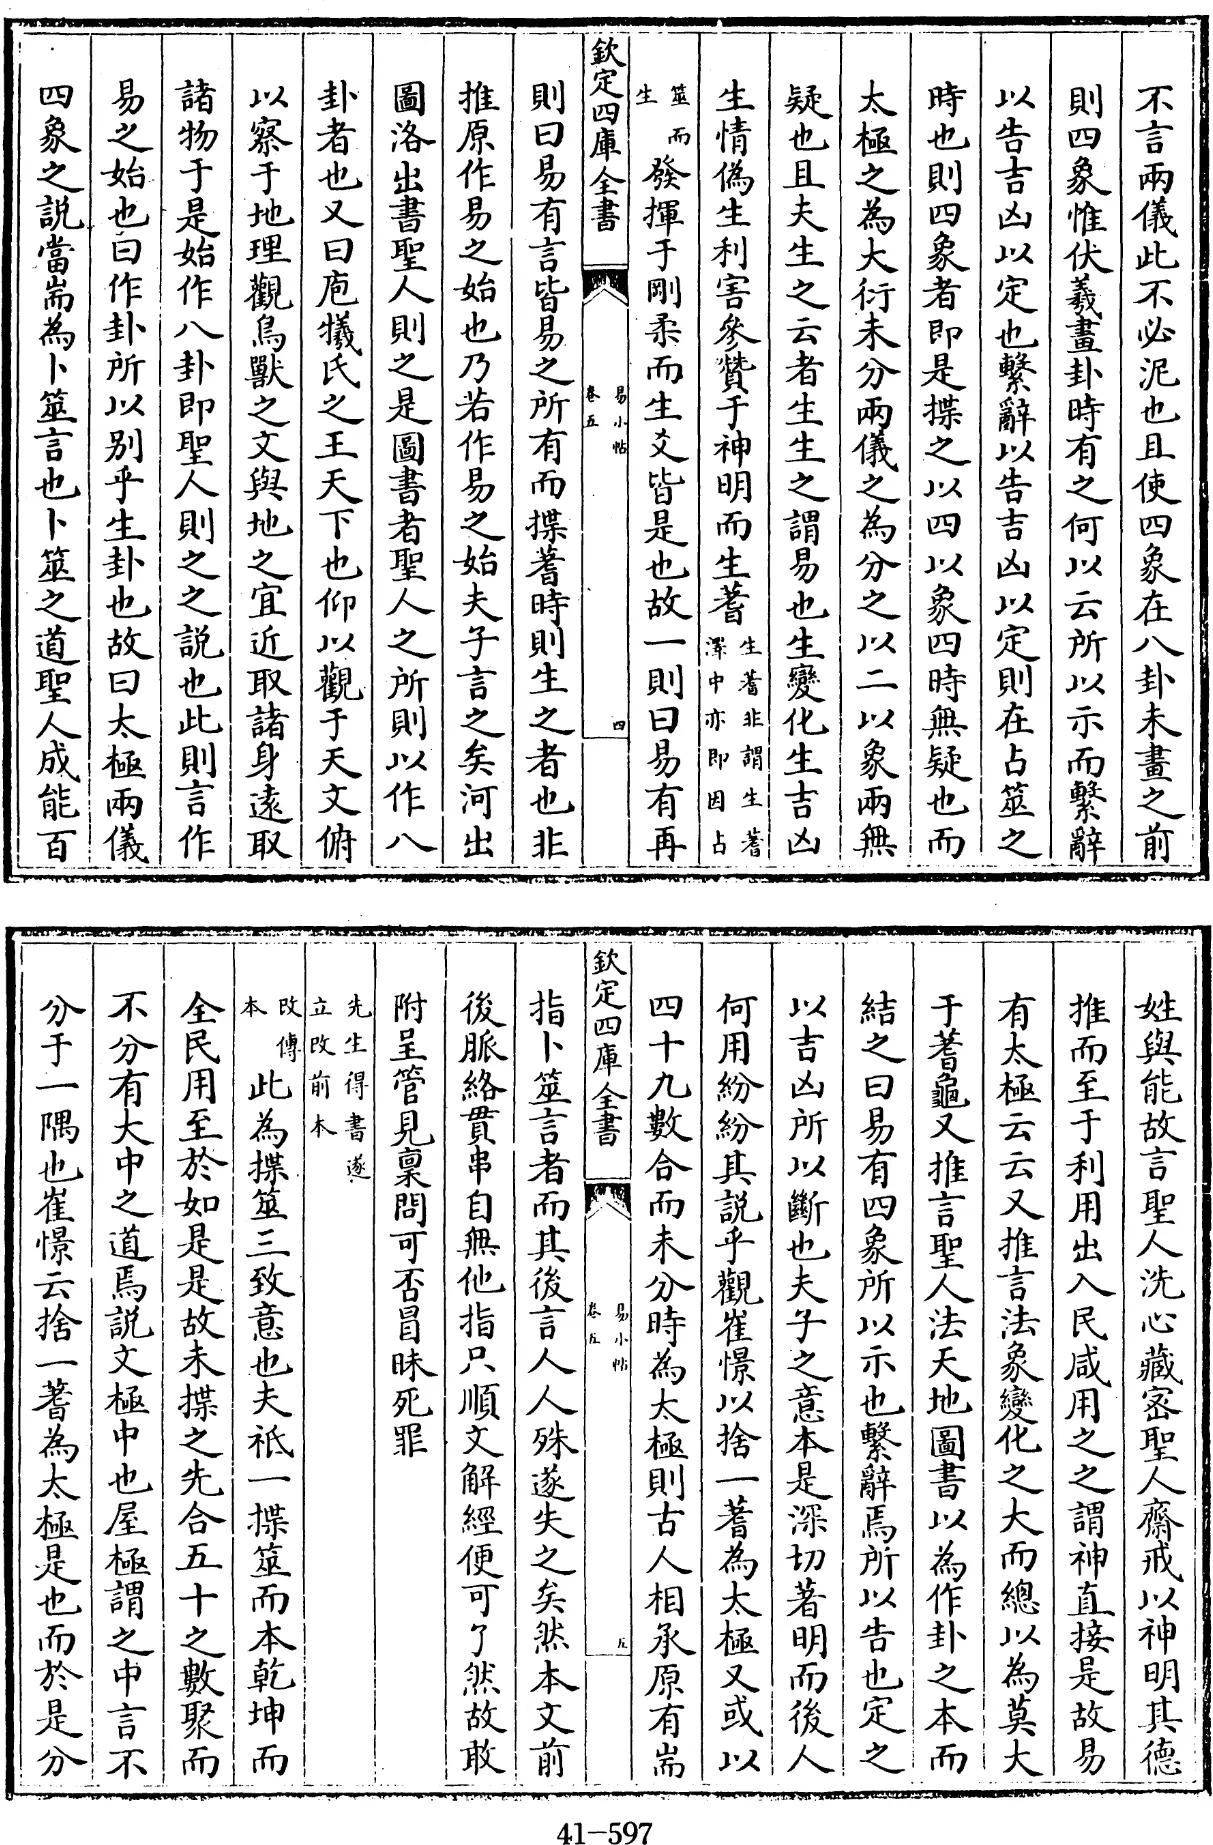 不言兩儀此不必泥也且使四象在八卦未畫之前
則四象惟伏羲畫卦時有之何以云所以示而繫辭
以告吉凶以定也繫辭以告吉凶以定則在占筮之
時也則四象者即是揲之以四以象四時無疑也而
太極之為大衍未分兩儀之為分之以二以象兩無
疑也且夫生之云者生生之謂易也生變化生吉凶
生情偽生利害參贊于神明而生蓍生蓍非謂生蓍澤中亦即因占
筮而生發揮于剛柔而生爻皆是也故一則曰易有再
欽定四庫全書 易小帖 卷五 四
則曰易有言皆易之所有而揲蓍時則生之者也非
推原作易之始也乃若作易之始夫子言之矣河出
圖洛出書聖人則之是圖書者聖人之所則以作八
卦者也又曰庖犧氏之王天下也仰以觀于天文俯
以察于地理觀鳥獸之文與地之宜近取諸身遠取
諸物于是始作八卦即聖人則之之說也此則言作
易之始也曰作卦所以别乎生卦也故曰太極兩儀
四象之說當耑為卜筮言也卜筮之道聖人成能百
姓與能故言聖人洗心藏密聖人齋戒以神明其德
推而至于利用出入民咸用之之謂神直接是故易
有太極云云又推言法象變化之大而總以為莫大
于蓍龜又推言聖人法天地圖書以為作卦之本而
結之曰易有四象所以示也繫辭焉所以告也定之
以吉凶所以斷也夫子之意本是深切著明而後人
何用紛紛其說乎觀崔憬以捨一蓍為太極又或以
四十九數合而未分時為太極則古人相承原有耑
欽定四庫全書 易小帖 卷五 五
指卜筮言者而其後言人人殊遂失之矣然本文前
後脈絡貫串自無他指只順文解經便可了然故敢
附呈管見稟問可否冒昧死罪
先生得書遂立改前本
改傳本此為揲筮三致意也夫祇一揲筮而本乾坤而
全民用至於如是是故未揲之先合五十之數聚而
不分有大中之道焉說文極中也屋極謂之中言不
分于一隅也崔憬云捨一蓍為太極是也而於是分
41-597